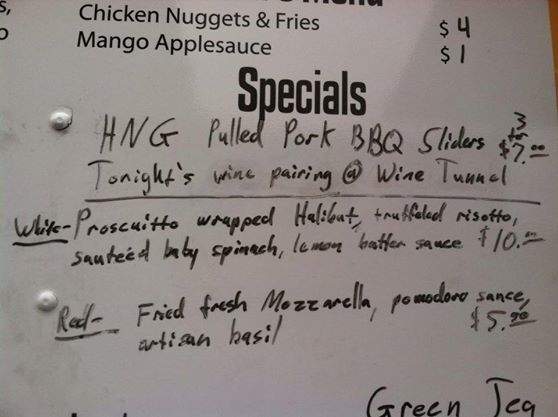 Menu
s,
Chicken Nuggets & Fries $4
o
Mango Applesauce $1
Specials
HNG Pulled Pork BBQ Sliders 3 for $7.00
Tonight's wine pairing @ Wine Tunnel
White- Proscuitto wrapped Halibut, truffeled risotto,
sauteéd baby spinach, lemon butter sauce $10.00
Red- Fried fresh Mozzarella, pomodoro sauce,
artisan basil $5.00
Green Tea